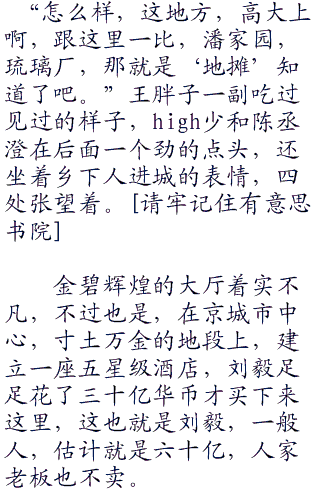 “怎么样，这地方，高大上
啊，跟这里一比，潘家园，
琉璃厂，那就是‘地摊’知
道了吧。”王胖子一副吃过
见过的样子，high少和陈丞
澄在后面一个劲的点头，还
坐着乡下人进城的表情，四
处张望着。[请牢记住有意思
书院]
金碧辉煌的大厅着实不
凡，不过也是，在京城市中
心，寸土万金的地段上，建
立一座五星级酒店，刘毅足
足花了三十亿华币才买下来
这里，这也就是刘毅，一般
人，估计就是六十亿，人家
老板也不卖。